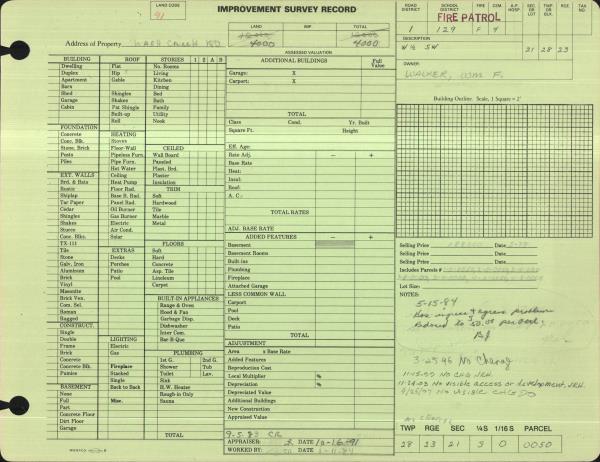 LAND CODE
91
IMPROVEMENT SURVEY RECORD
ROAD DISTRICT
SCHOOL DISTRICT
A.P. HOSP.
SEC OR LOT
TWP OR BLK.
RGE
TAX NO
FIRE PATROL
1 129 F 4
LAND IMP TOTAL
4000 4000
Address of Property
ASSESSED VALUATION
W½ SW 21 28 23
OWNER
WALKER, WM F.
BUILDING ROOF STORIES 1 2 A B
Dwelling Flat No. Rooms
Duplex Hip Living
Apartment Gable Kitchen
Barn Dining
Shed Shingles Bed
Garage Shakes Bath
Cabin Pat Shingle Family
Built-up Utility
Roll Nook
FOUNDATION
Concrete HEATING
Conc. Blk. Stoves CEILED
Stone, Brick Floor-Wall Wall Board
Posts Pipeless Furn. Paneled
Piles Pipe Furn. Plast. Brd.
Hot Water Plaster
EXT. WALLS Ceiling Insulation
Brd. & Bats Heat Pump
Rustic Floor Rad. TRIM
Shiplap Base B. Rad. Soft
Tar Paper Panel Rad. Hardwood
Cedar Oil Burner Tile
Shingles Gas Burner Marble
Shakes Electric Metal
Stucco Air Cond.
Conc. Blks. Solar
TX-111 FLOORS
Tile EXTRAS Soft
Stone Decks Hard
Galv. Iron Porches Concrete
Aluminum Patio Asp. Tile
Brick Pool Linoleum
Vinyl Carpet
Masonite
Brick Ven. BUILT-IN APPLIANCES
Com. Sel. Range & Oven
Roman Hood & Fan
Rugged Garbage Disp.
CONSTRUCT. Dishwasher
Single Inter Com.
Double LIGHTING Bar-B-Que
Frame Electric
Brick Gas PLUMBING
Concrete 1st G. 2nd G.
Concrete Blk. Fireplace Shower Tub
Pumice Stacked Toilet Lav.
Single Sink
BASEMENT Back to Back H.W. Heater
None Rough-in Only
Full Misc. Sauna
Part
Concrete Floor
Dirt Floor
Garage TOTAL
ADDITIONAL BUILDINGS Full Value
Garage: X
Carport: X
TOTAL
Class Cond. Yr. Built
Square Ft. Height
Eff. Age
Rate Adj. − +
Base Rate
Heat:
Insul:
Roof:
A. C.:
TOTAL RATES
ADJ. BASE RATE
ADDED FEATURES − +
Basement
Basement Rooms
Built-ins
Plumbing
Fireplace
Attached Garage
LESS COMMON WALL
Carport
Pool
Deck
Patio
TOTAL
ADJUSTMENT
Area x Base Rate
Added Features
Reproduction Cost
Local Multiplier %
Depreciation %
Depreciated Value
Additional Buildings
New Construction
Appraised Value
9-5-83 CR
APPRAISER: DATE 10-16-91
WORKED BY: DATE
Building Outline Scale, 1 Square = 2'
Selling Price Date
Selling Price Date
Includes Parcels #
NOTES:
5-15-84
3-25-96 No Change
11-15-99 No CHG JRH
11-24-03 No VISIBLE ACCESS or development, JRH.
No VISIBLE CHG
TWP RGE SEC ¼S 1/16 S PARCEL
28 23 21 3 0 0050